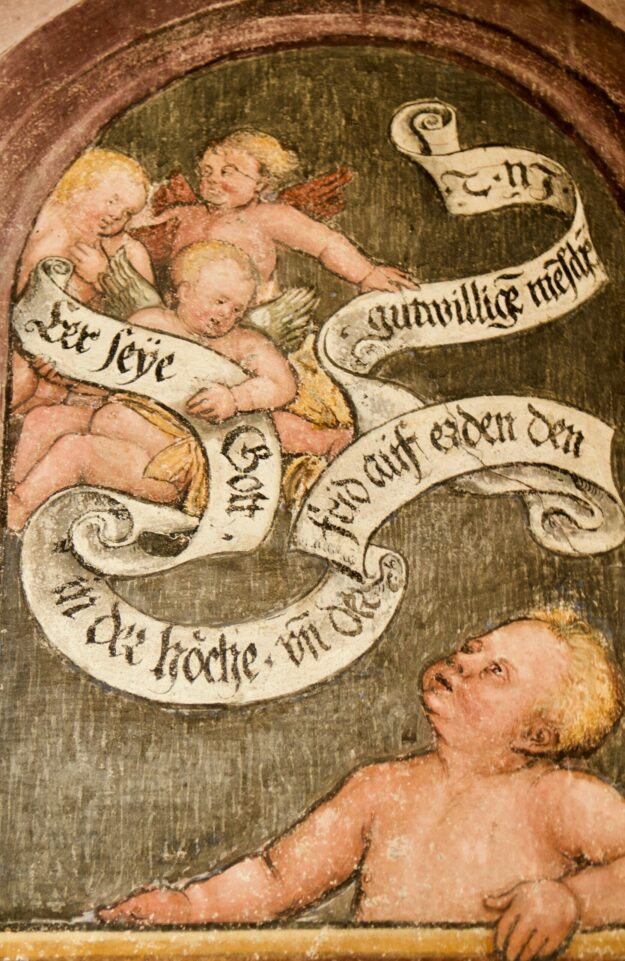 Eer seÿe
Gott
in der höche · vn̄ der
frid auf erden den
gutwilligē mēschē
·Lu·2·